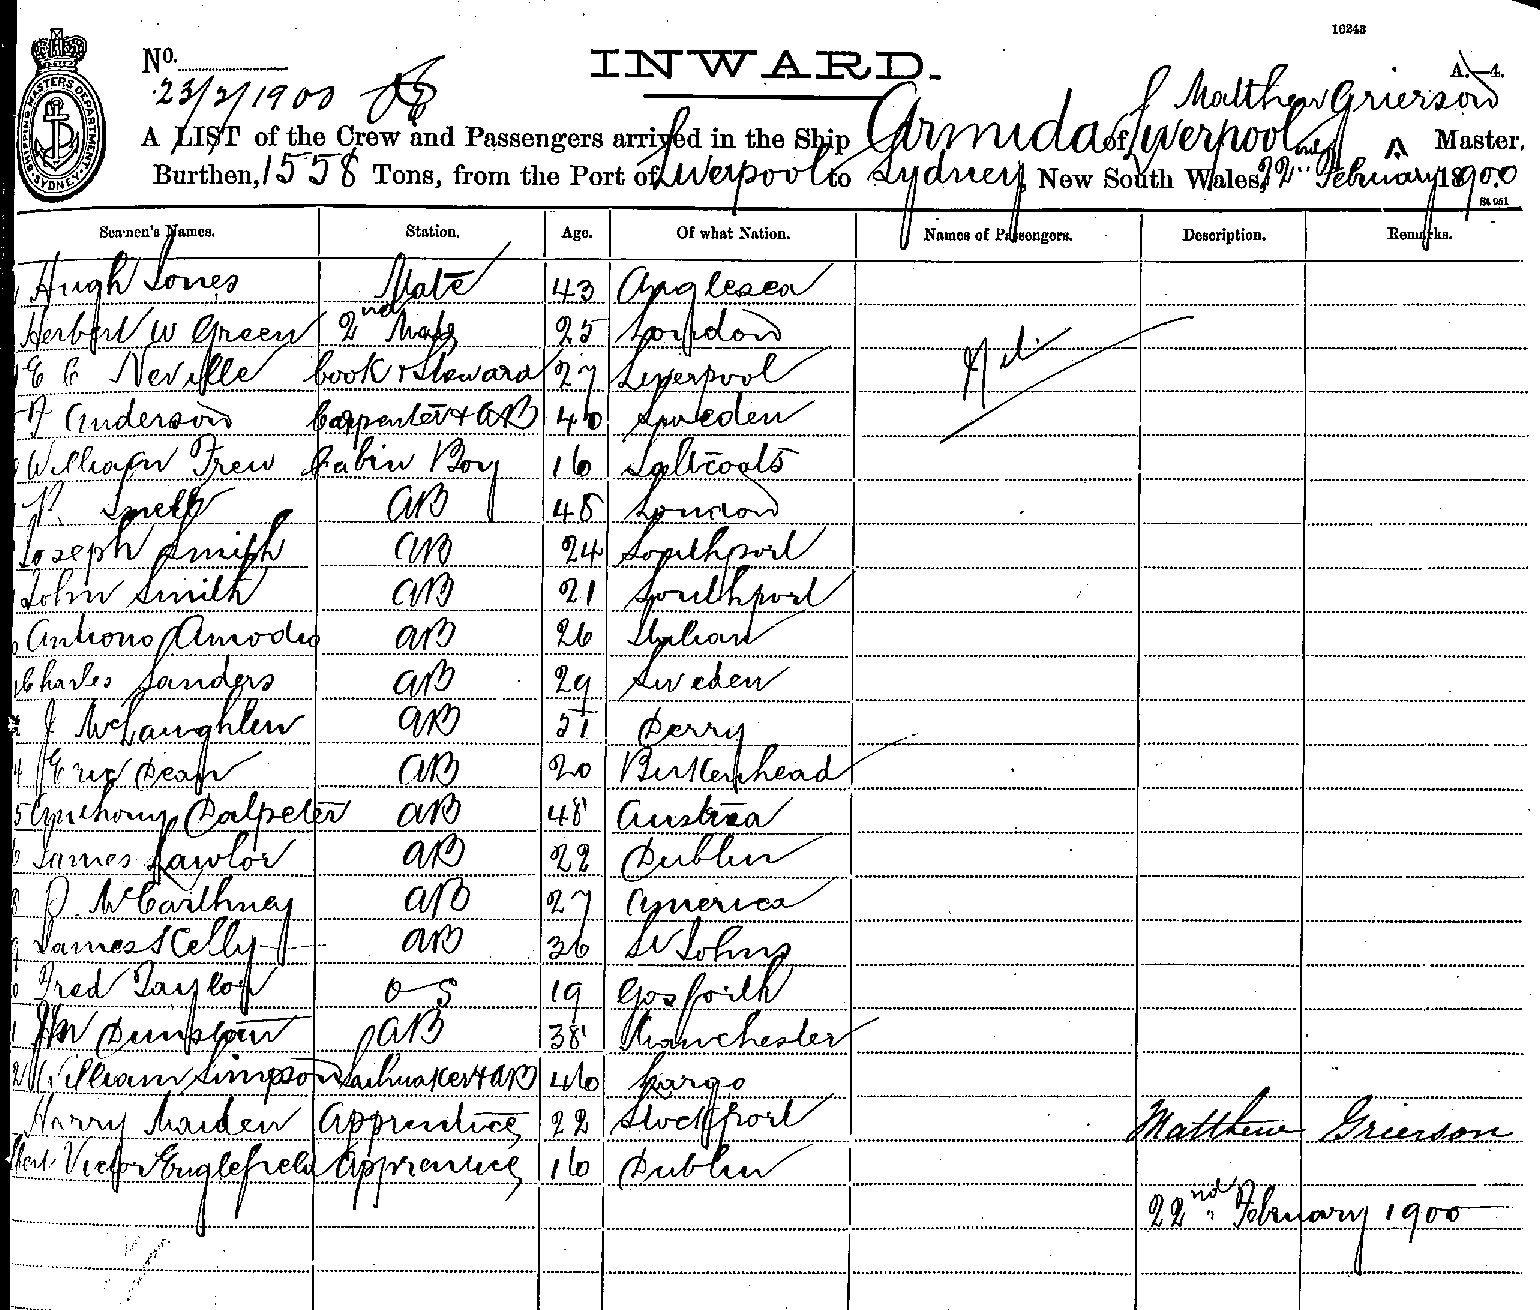 10243
No.
INWARD.
A.—4.
23/2/1900
Matthew Grierson
A LIST of the Crew and Passengers arrived in the Ship Armida of Liverpool Master,
Burthen, 1558 Tons, from the Port of Liverpool to Sydney, New South Wales, 22nd February 1900
SHIPPING MASTERS DEPARTMENT SYDNEY
Seamen's Names. Station. Age. Of what Nation. Names of Passengers. Description. Remarks.
Hugh Jones Mate 43 Anglesea
Herbert W Green 2nd Mate 25 London
E C Neville Cook & Steward 27 Liverpool
Nil
Anderson Carpenter & AB 40 Sweden
William Frew Cabin Boy 16 Saltcoats
P. Snell AB 48 London
Joseph Smith AB 24 Southport
John Smith AB 21 Southport
Antiono Amodio AB 26 Italian
Charles Sanders AB 29 Sweden
J McLaughlin AB 51 Derry
4 Eric Dean AB 20 Birkenhead
5 Anthony Dalpeter AB 48 Austria
6 James Lawlor AB 22 Dublin
8 McCarthney AB 27 America
9 James Kelly AB 36 St Johns
0 Fred Taylor OS 19 Gosforth
1 Dunstan AB 38 Manchester
2 William Simpson Sailmaker & AB 46 Largo
Harry Maiden Apprentice 22 Stockport
Victor Englefield Apprentice 16 Dublin
Matthew Grierson
22nd February 1900